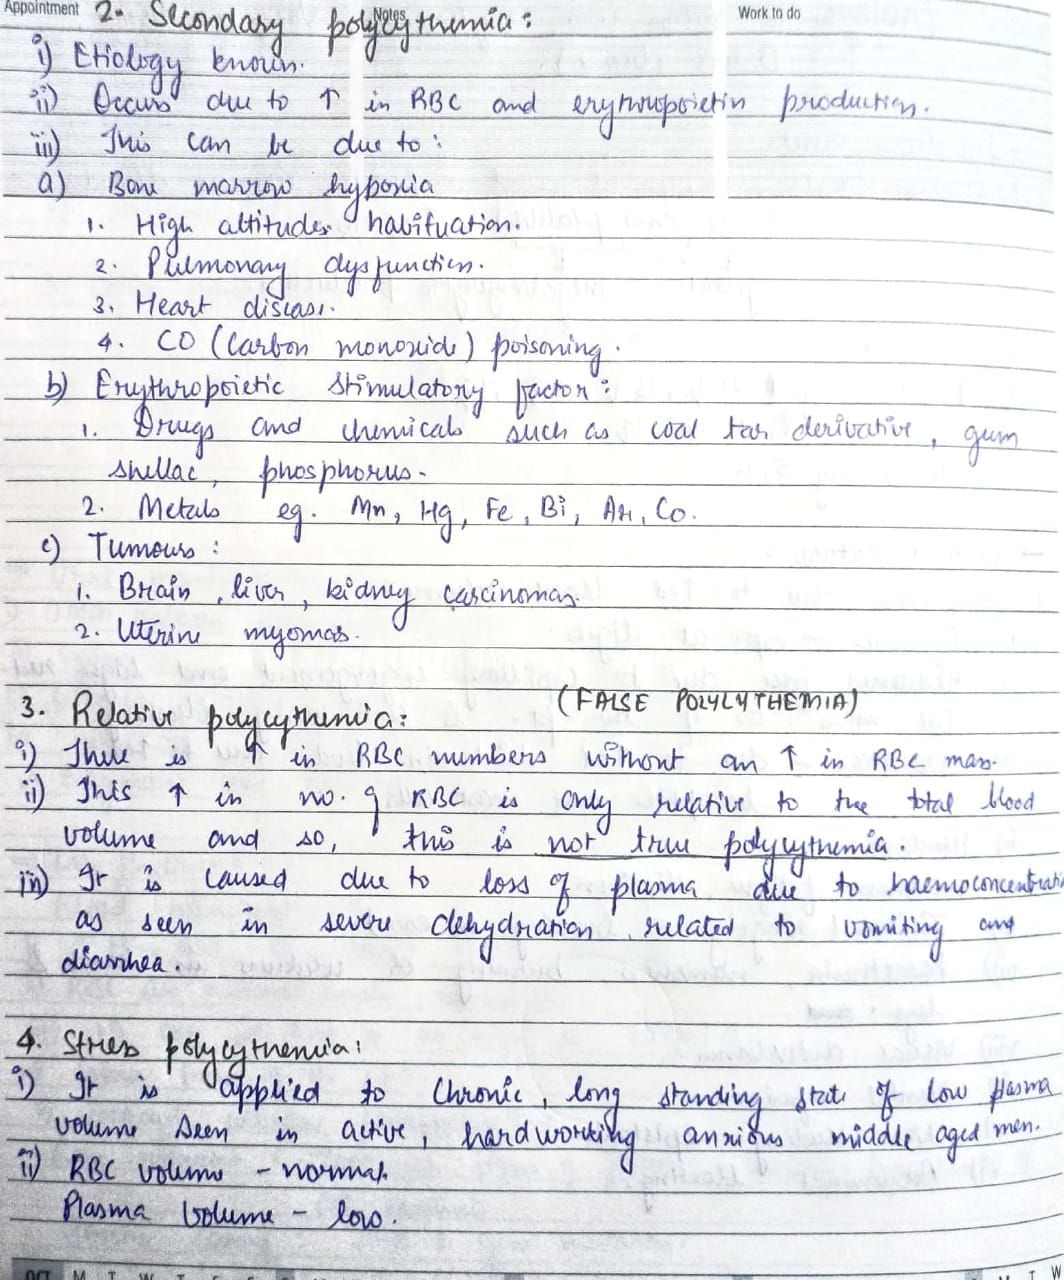 Appointment Notes Work to do
2. Secondary polycythemia:
i) Etiology known.
ii) Occurs due to ↑ in RBC and erythropoietin production.
iii) This can be due to:
a) Bone marrow hypoxia
1. High altitudes habituation.
2. Pulmonary dysfunction.
3. Heart disease.
4. CO (Carbon monoxide) poisoning.
b) Erythropoietic stimulatory factor:
1. Drugs and chemicals such as coal tar derivative, gum
shellac, phosphorus.
2. Metals eg. Mn, Hg, Fe, Bi, Ar, Co.
c) Tumours:
1. Brain, liver, kidney carcinomas.
2. Uterine myomas.
3. Relative polycythemia: (FALSE POLYCYTHEMIA)
i) There is ↑ in RBC numbers without an ↑ in RBC mass.
ii) This ↑ in no. of RBC is only relative to the total blood
volume and so, this is not true polycythemia.
iii) It is caused due to loss of plasma due to haemoconcentrati
as seen in severe dehydration related to vomiting and
diarrhea.
4. Stress polycythemia:
i) It is applied to chronic, long standing state of low plasma
volume seen in active, hardworking anxious middle aged men.
ii) RBC volume - normal.
Plasma volume - low.